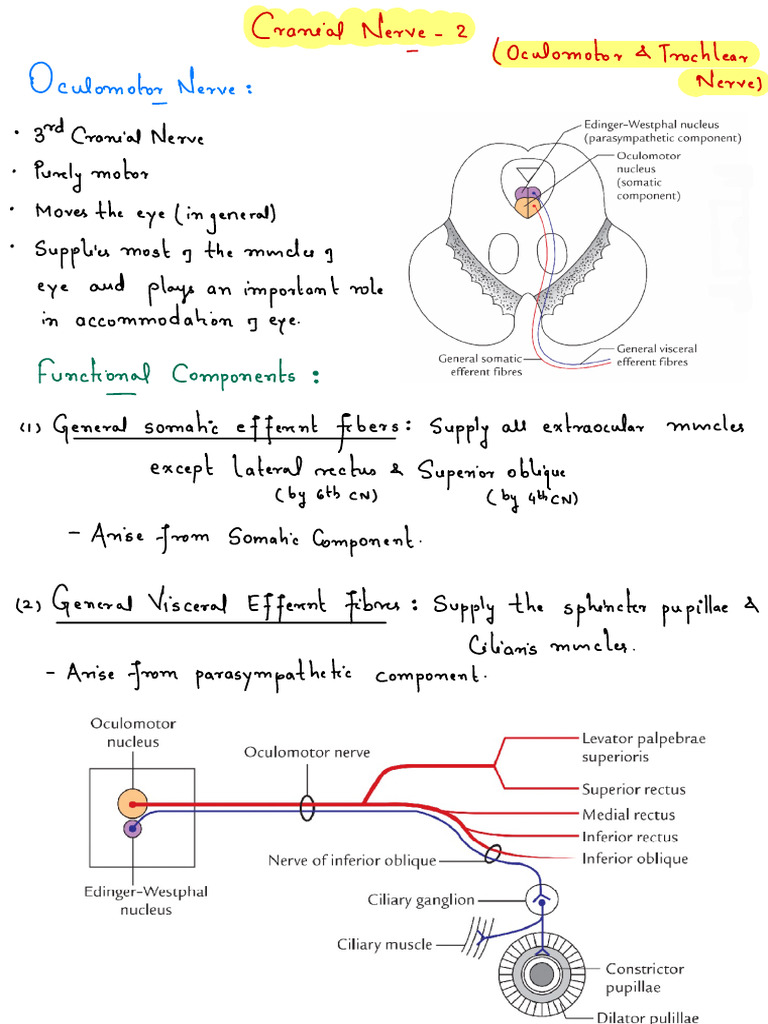 Cranial Nerve - 2
(Oculomotor & Trochlear
Nerve)
Oculomotor Nerve :
• 3rd Cranial Nerve
• Purely motor
• Moves the eye (in general)
• Supplies most of the muscles of
eye and plays an important role
in accommodation of eye.
Edinger-Westphal nucleus
(parasympathetic component)
Oculomotor
nucleus
(somatic
component)
General somatic
efferent fibres
General visceral
efferent fibres
Functional Components :
(1) General somatic efferent fibers : Supply all extraocular muscles
except Lateral rectus & Superior oblique
(by 6th CN) (by 4th CN)
- Arise from Somatic Component.
(2) General Visceral Efferent Fibres : Supply the sphincter pupillae &
Ciliaris muscles.
- Arise from parasympathetic component.
Oculomotor
nucleus
Oculomotor nerve
Levator palpebrae
superioris
Superior rectus
Medial rectus
Inferior rectus
Inferior oblique
Nerve of inferior oblique
Edinger-Westphal
nucleus
Ciliary ganglion
Ciliary muscle
Constrictor
pupillae
Dilator pulillae